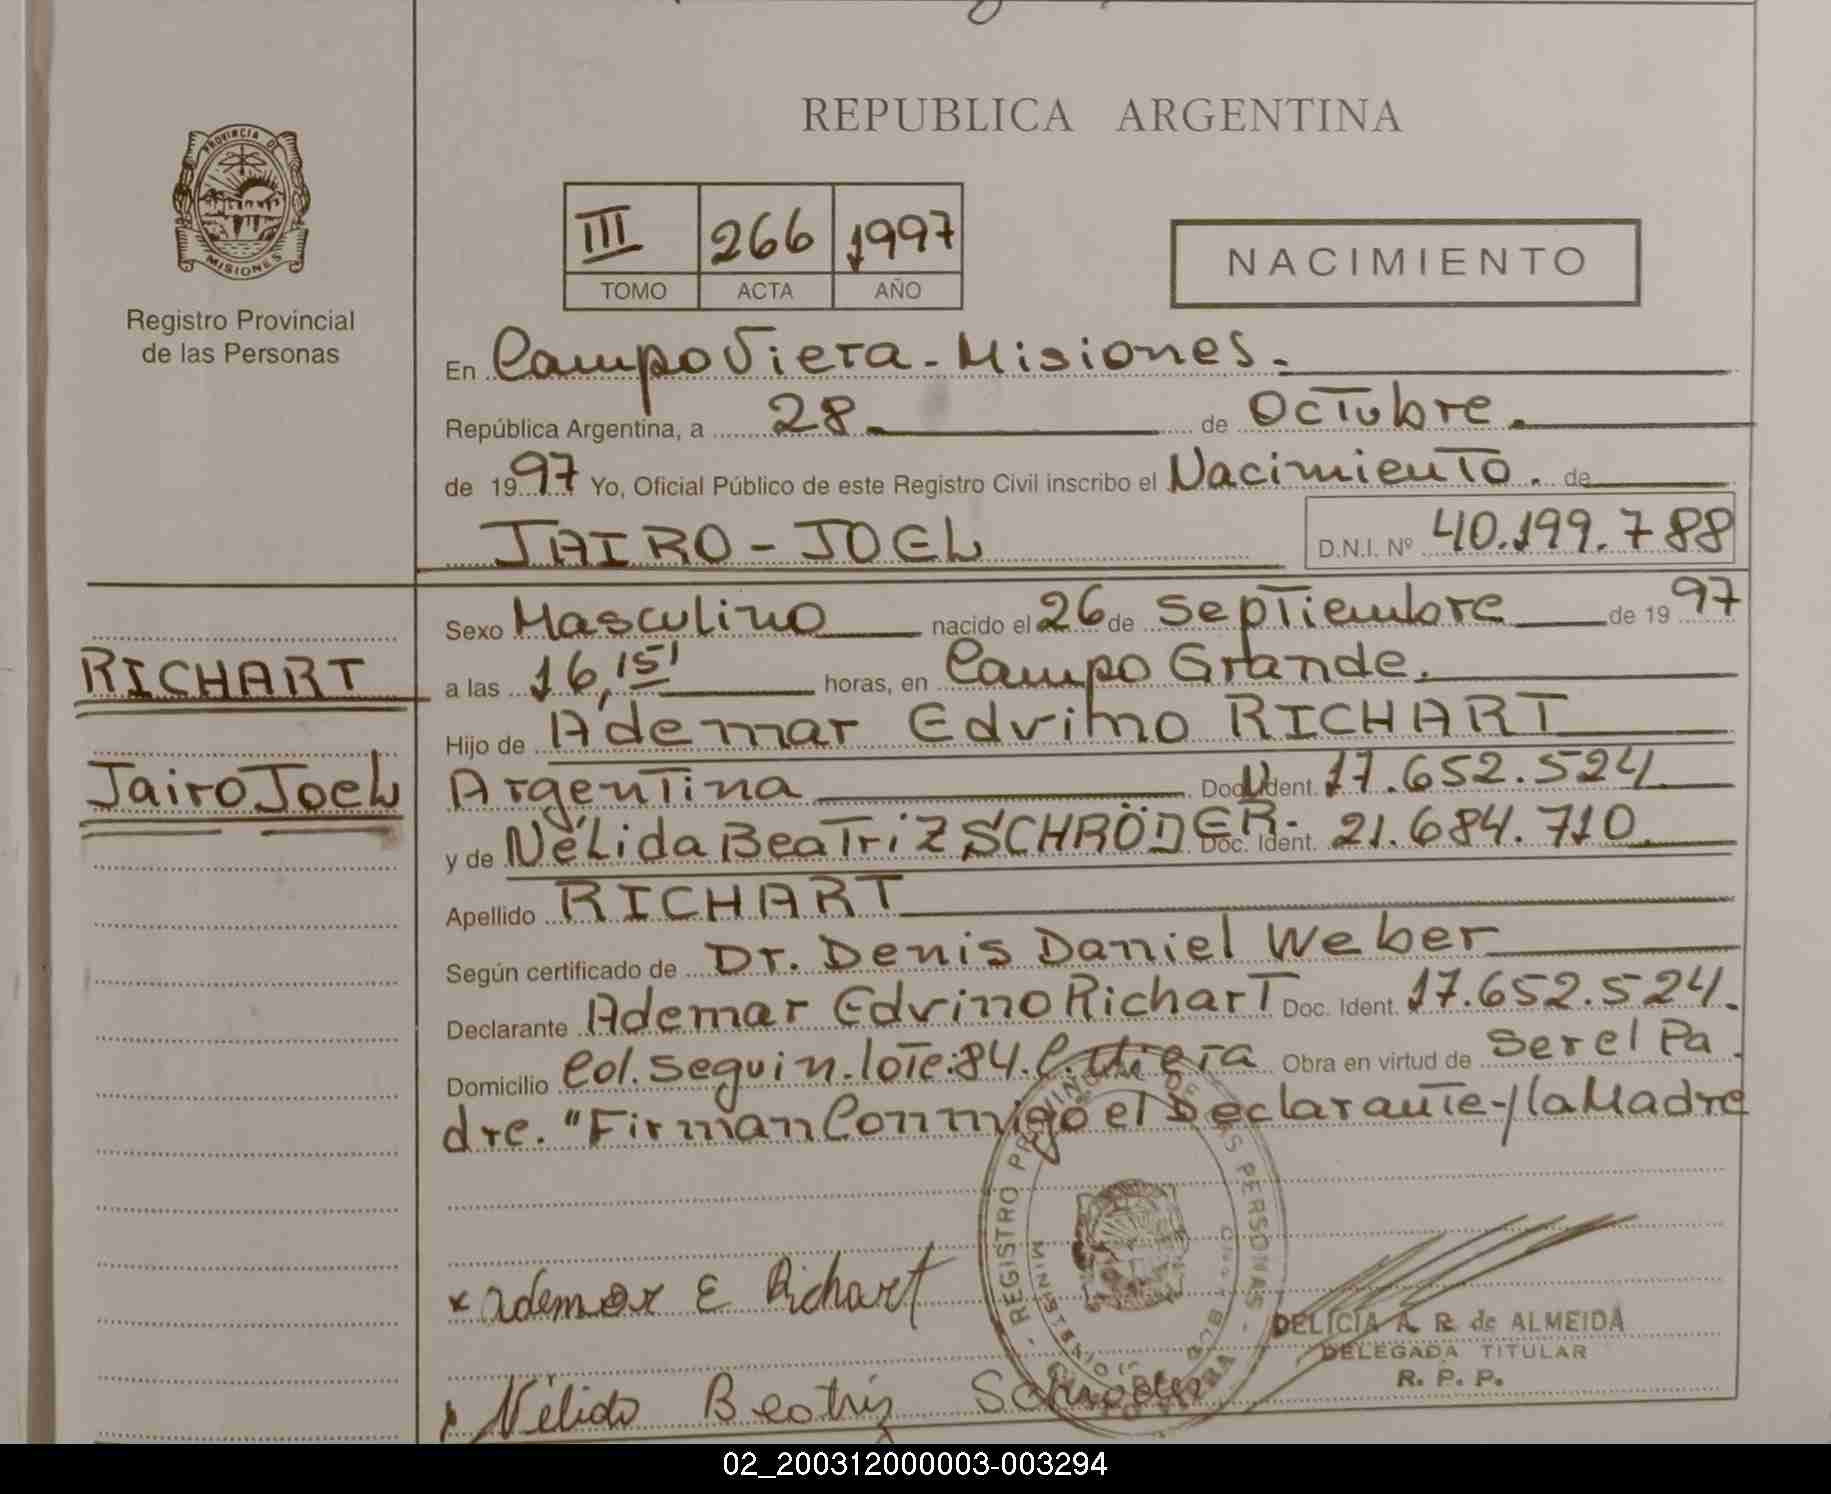 REPUBLICA ARGENTINA
PROVINCIA DE
MISIONES
Registro Provincial
de las Personas
III 266 1997
TOMO ACTA AÑO
NACIMIENTO
En Campo Viera - Misiones.
República Argentina, a 28 de Octubre.
de 1997 Yo, Oficial Público de este Registro Civil inscribo el Nacimiento. de
JAIRO - JOEL D.N.I. Nº 40.199.788
RICHART
Jairo Joel
Sexo Masculino nacido el 26 de Septiembre de 1997
a las 16,15' horas, en Campo Grande.
Hijo de Ademar Edvino RICHART
Argentina Doc. Ident. 17.652.524
y de Nélida Beatriz SCHRÖDER. Doc. Ident. 21.684.710
Apellido RICHART
Según certificado de Dr. Denis Daniel Weber
Declarante Ademar Edvino Richart Doc. Ident. 17.652.524.
Domicilio Col. Seguin. lote: 84. C. Viera Obra en virtud de Ser el Pa
dre. "Firman Conmigo el Declarante y la Madre
REGISTRO PROVINCIAL DE LAS PERSONAS
x ademar E Richart
DELICIA A. R. de ALMEIDA
DELEGADA TITULAR
R. P. P.
Nélida Beatriz Schroder
02_200312000003-003294